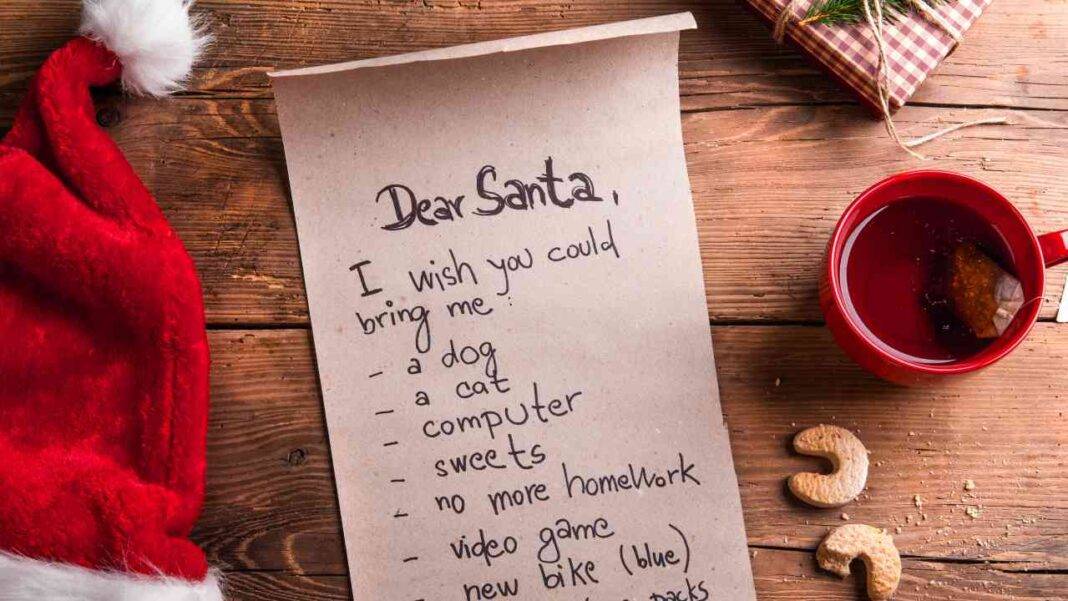 Dear Santa,
I wish you could
bring me:
- a dog
- a cat
- computer
- sweets
- no more homework
- video game
- new bike (blue)
packs